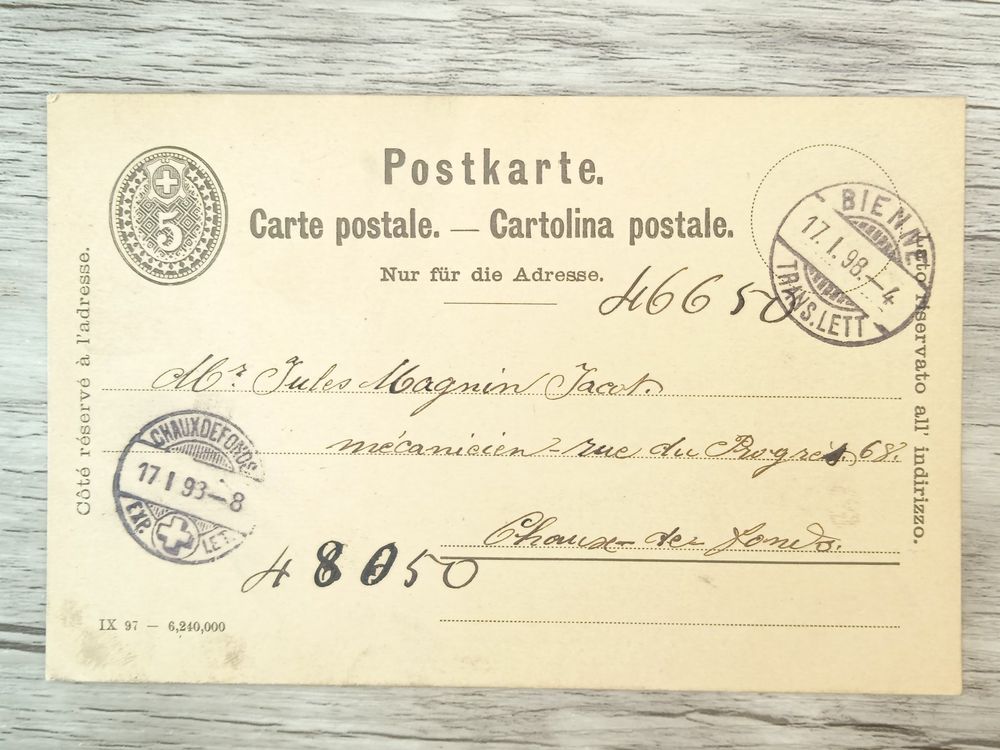 5
Postkarte.
Carte postale. — Cartolina postale.
Nur für die Adresse.
Côté réservé à l'adresse.
Lato riservato all' indirizzo.
BIENNE
17. I. 98.–4
TRANS. LETT
466 50
Mr. Jules Magnin Jacot.
mécanicien - rue du Progrès, 68.
Chaux-de-fonds.
CHAUXDEFONDS
17 I 98–8
EXP. LET.
480 50
IX 97 — 6,240,000